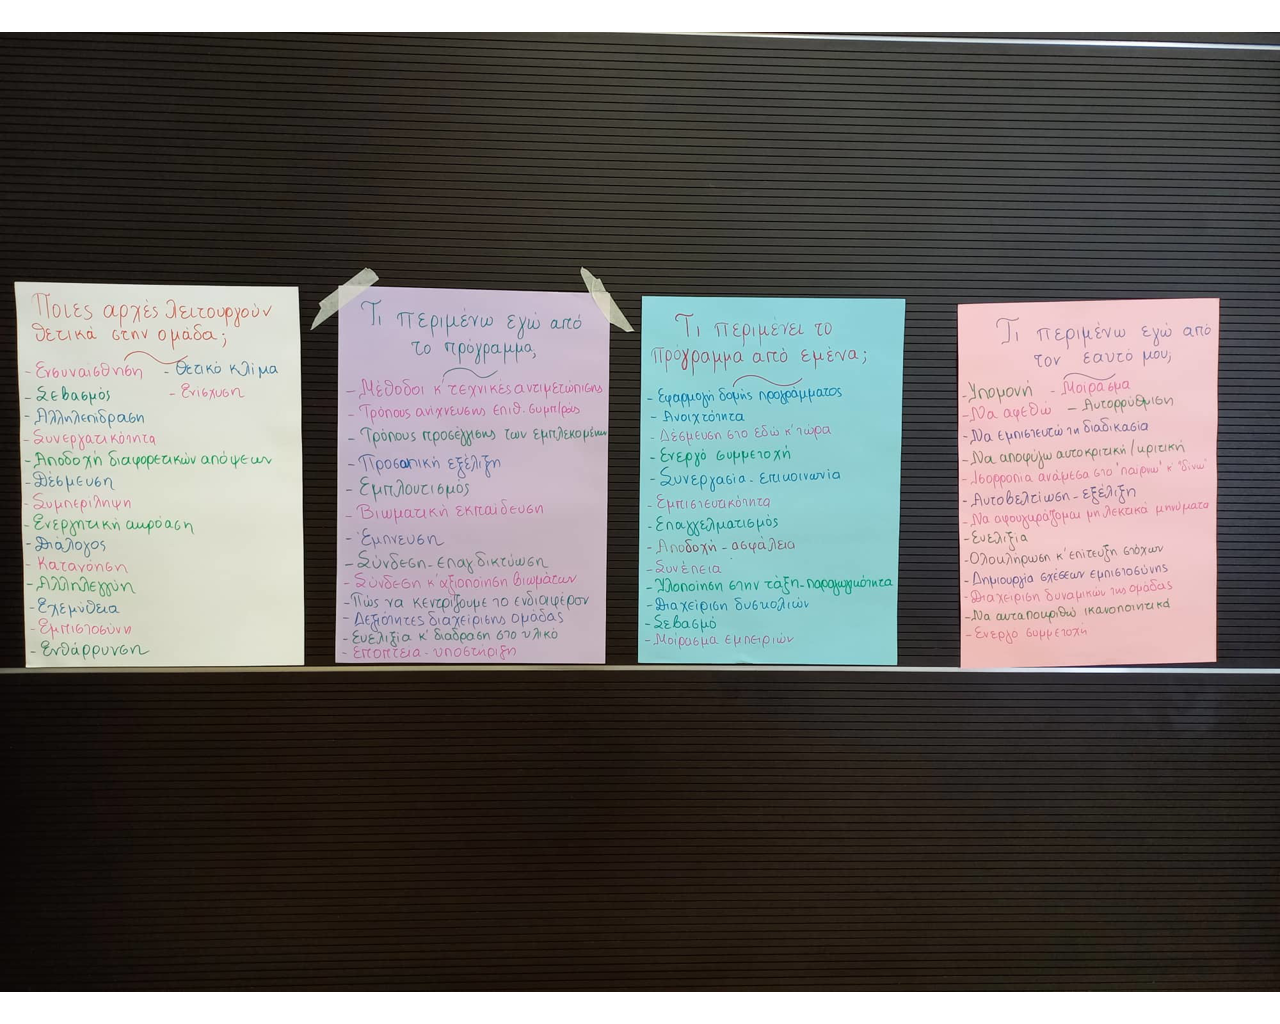 Ποιες αρχές λειτουργούν
θετικά στην ομάδα;
- Ενσυναίσθηση - Θετικό κλίμα
- Σεβασμός - Ενίσχυση
- Αλληλεπίδραση
- Συνεργατικότητα
- Αποδοχή διαφορετικών απόψεων
- Δέσμευση
- Συμπερίληψη
- Ενεργητική ακρόαση
- Διάλογος
- Κατανόηση
- Αλληλεγγύη
- Εχεμύθεια
- Εμπιστοσύνη
- Ενθάρρυνση
Τι περιμένω εγώ από
το πρόγραμμα;
- Μέθοδοι κ' τεχνικές αντιμετώπισης
- Τρόπους ανίχνευσης επιθ. συμπ/ράς
- Τρόπους προσέγγισης των εμπλεκομένων
- Προσωπική εξέλιξη
- Εμπλουτισμός
- Βιωματική εκπαίδευση
- Έμπνευση
- Σύνδεση - επαγ. δικτύωση
- Σύνδεση κ' αξιοποίηση βιωμάτων
- Πώς να κεντρίζουμε το ενδιαφέρον
- Δεξιότητες διαχείρισης ομάδας
- Ευελιξία κ' διάδραση στο υλικό
- Εποπτεία - υποστήριξη
Τι περιμένει το
πρόγραμμα από εμένα;
- Εφαρμογή δομής προγράμματος
- Ανοιχτότητα
- Δέσμευση στο εδώ κ' τώρα
- Ενεργό συμμετοχή
- Συνεργασία - επικοινωνία
- Εμπιστευτικότητα
- Επαγγελματισμός
- Αποδοχή - ασφάλεια
- Συνέπεια
- Υλοποίηση στην τάξη - παραγωγικότητα
- Διαχείριση δυσκολιών
- Σεβασμό
- Μοίρασμα εμπειριών
Τι περιμένω εγώ από
τον εαυτό μου;
- Υπομονή - Μοίρασμα
- Να αφεθώ - Αυτορρύθμιση
- Να εμπιστευτώ τη διαδικασία
- Να αποφύγω αυτοκριτική / κριτική
- Ισορροπία ανάμεσα στο "παίρνω" κ' "δίνω"
- Αυτοβελτίωση - εξέλιξη
- Να αφουγκράζομαι μη λεκτικά μηνύματα
- Ευελιξία
- Ολοκλήρωση κ' επίτευξη στόχων
- Δημιουργία σχέσεων εμπιστοσύνης
- Διαχείριση δυναμικών της ομάδας
- Να ανταποκριθώ ικανοποιητικά
- Ενεργό συμμετοχή